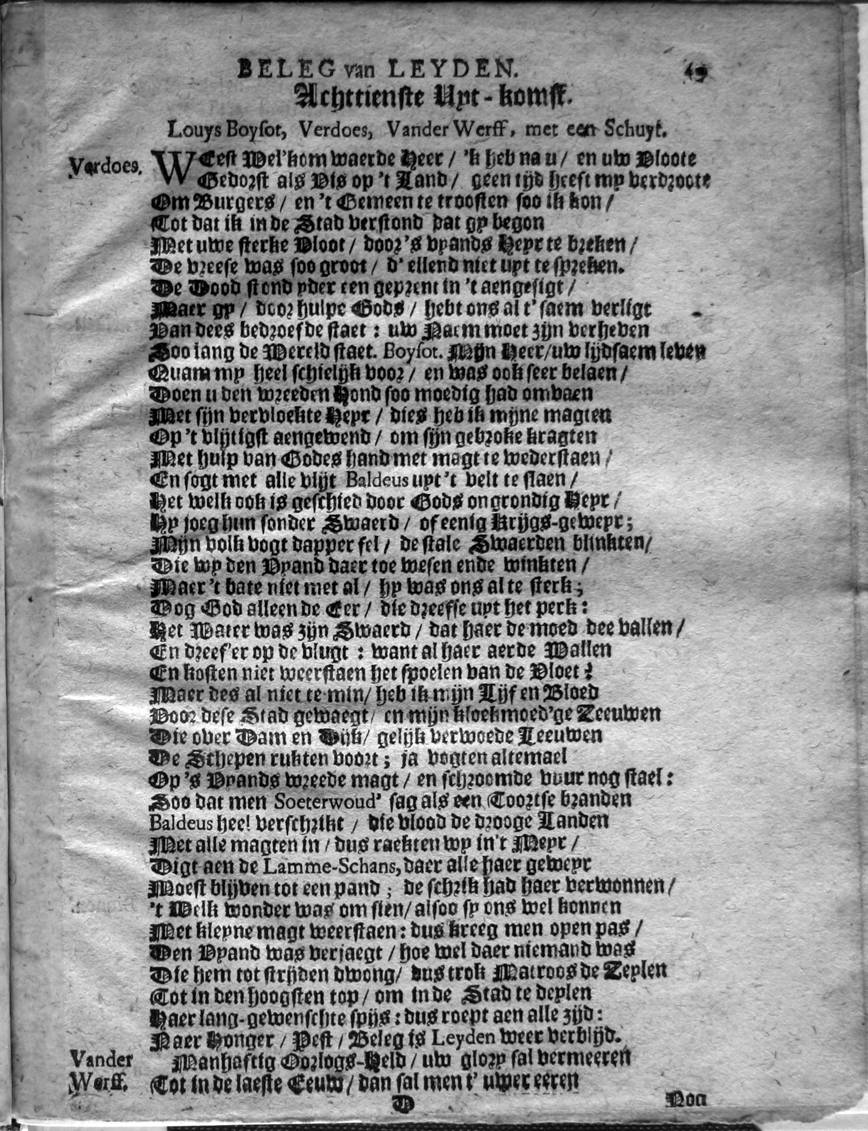 BELEG van LEYDEN. 49
Achttienste Uyt-komst.
Louys Boysot, Verdoes, Vander Werff, met een Schuyt.
Verdoes. WEest Wel'kom waerde Heer / 'k heb na u / en uw Vloote
Gedorst als Vis op 't Land / geen tijd heeft my verdroote
Om Burgers / en 't Gemeen te troosten soo ik kon /
Tot dat ik in de Stad verstond dat gy begon
Met uwe sterke Vloot / door 's vyands Heyr te breken /
De vreese was soo groot / d' ellend niet uyt te spreken.
De Dood stond yder een geprent in 't aengesigt /
Maer gy / door hulpe Gods / hebt ons al t' saem verligt
Van dees bedroefde staet : uw Naem moet zijn verheven
Soo lang de Wereld staet. Boysot. Mijn Heer/uw lijdsaem leven
Quam my heel schielijk voor / en was ook seer belaen /
Doen u den wreeden Hond soo moedig had omvaen
Met sijn vervloekte Heyr / dies heb ik mijne magten
Op 't vlijtigst aengewend / om sijn gebroke kragten
Met hulp van Godes hand met magt te wederstaen /
En sogt met alle vlijt Baldeus uyt 't velt te slaen /
Het welk ook is geschied door Gods ongrondig Heyr /
Hy joeg hun sonder Swaerd / of eenig Krijgs-geweyr ;
Mijn volk vogt dapper fel / de stale Swaerden blinkten/
Die wy den Vyand daer toe wesen ende winkten /
Maer 't bate niet met al / hy was ons al te sterk ;
Dog God alleen de Eer / die dreefse uyt het perk :
Het Water was zijn Swaerd / dat haer de moed dee vallen /
En dreef'er op de vlugt : want al haer aerde Wallen
En kosten niet weerstaen het spoelen van de Vloet :
Maer des al niet te min/ heb ik mijn Lijf en Bloed
Voor dese Stad gewaegt/ en mijn kloekmoed'ge Zeeuwen
Die over Dam en Dijk/ gelijk verwoede Leeuwen
De Schepen rukten voort ; ja vogten altemael
Op 's Vyands wreede magt / en schroomde vuur nog stael :
Soo dat men Soeterwoud' sag als een Toortse branden
Baldeus heel verschrikt / die vlood de drooge Landen
Met alle magten in / dus raekten wy in't Meyr /
Digt aen de Lamme-Schans, daer alle haer geweyr
Moest blijven tot een pand ; de schrik had haer verwonnen /
't Welk wonder was om sien/ alsoo sy ons wel konnen
Met kleyne magt weerstaen : dus kreeg men open pas /
Den Vyand was verjaegt / hoe wel daer niemand was
Die hem tot strijden dwong/ dus trok Matroos de Zeylen
Tot in den hoogsten top / om in de Stad te deylen
Haer lang-gewenschte spijs : dus roept aen alle zijd :
Naer Honger / Pest / Beleg is Leyden weer verblijd.
Vander Werff. Manhaftig Oorlogs-Held / uw glory sal vermeeren
Tot in de laeste Eeuw / dan sal men t' uwer eeren
D Nog